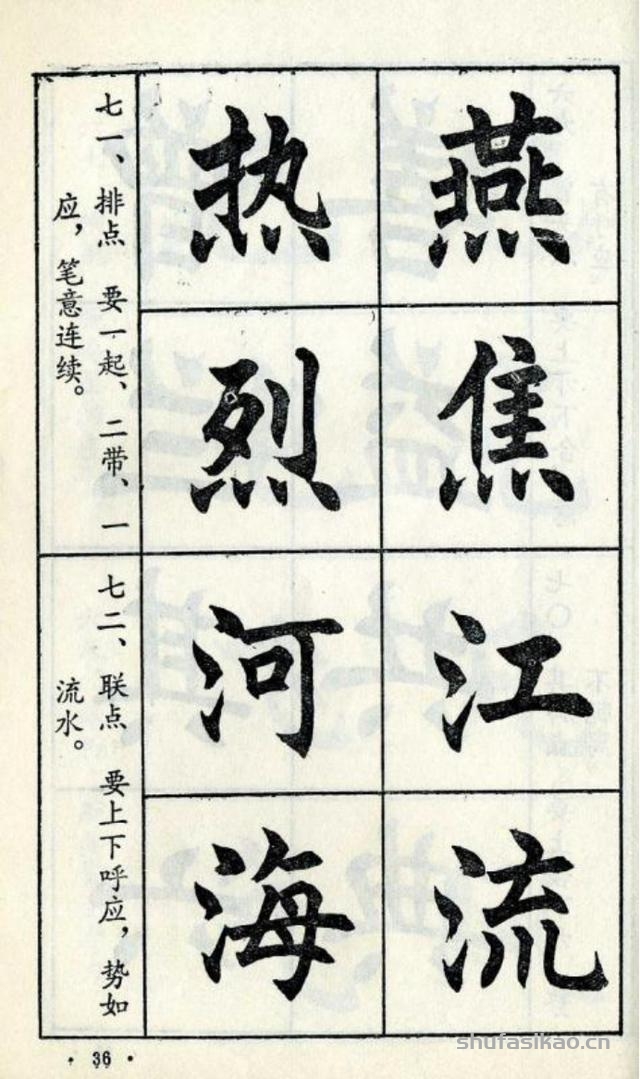 燕焦
热烈
七一、排点 要一起、二带、一
应，笔意连续。
江流
河海
七二、联点 要上下呼应，势如
流水。
·36·
shufasikao.cn